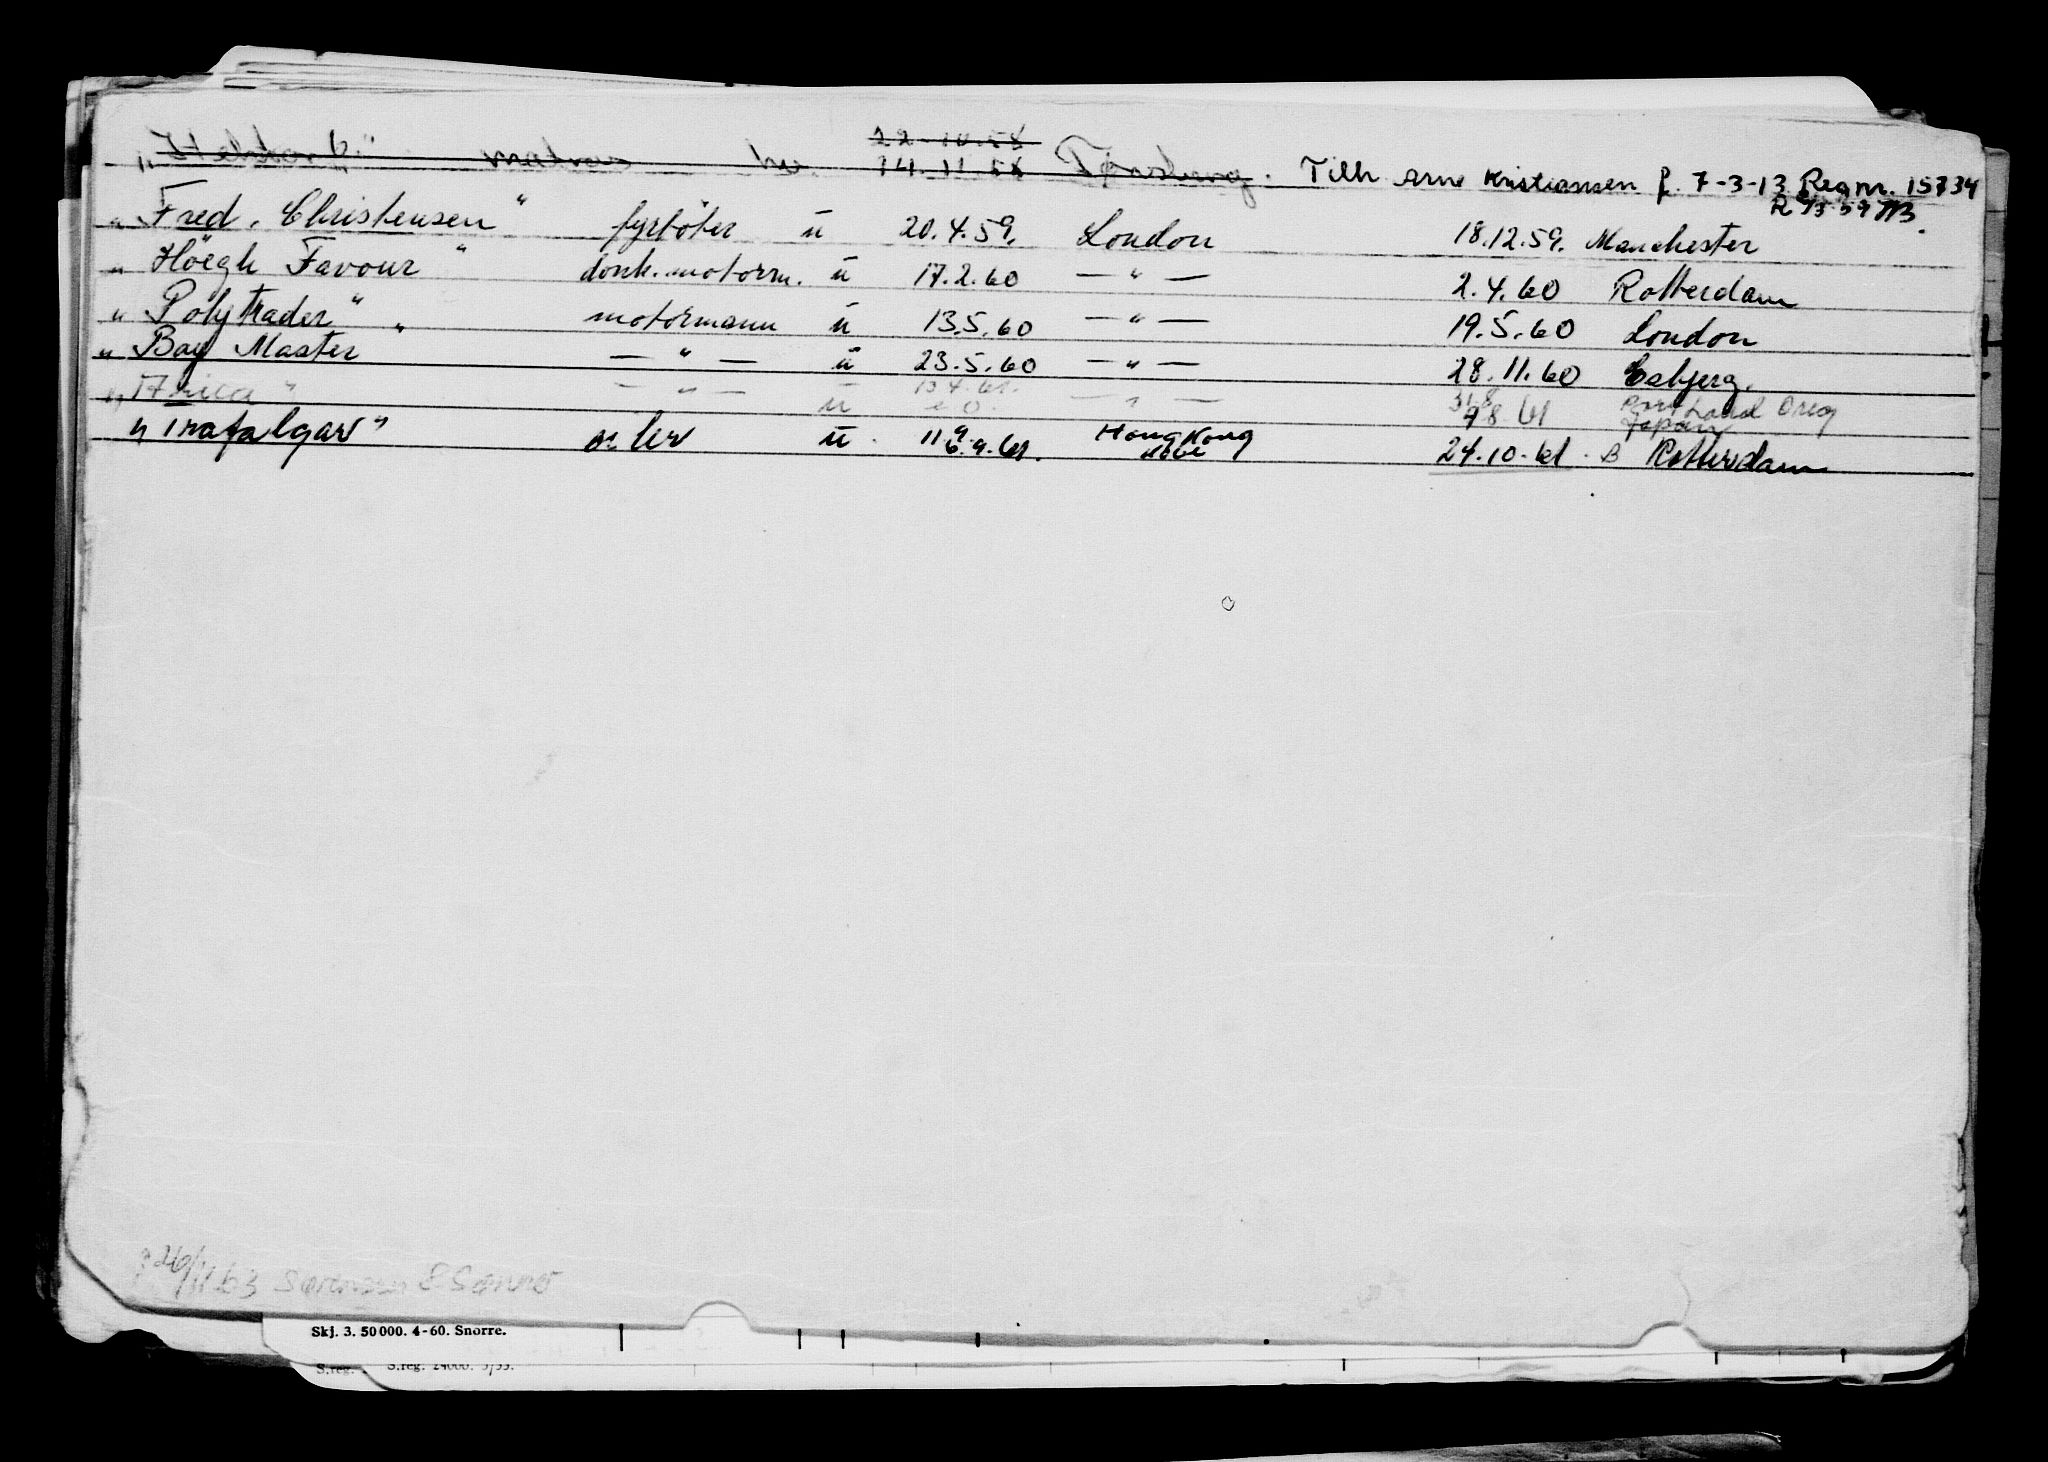 22-10-58
14.11.58 Tønsberg. Tilh Arne Kristiansen f. 7-3-13 Regnr. 15734
„Fred. Christensen" fyrböter ü 20.4.59. London 18.12.59. Manchester
„ Höegh Favour " donk.motorm. ü 17.2.60 — " — 2.4.60 Rotterdam
„ Polytrader " motormann ü 13.5.60 — " — 19.5.60 London
„ Bay Master " — " — ü 23.5.60 — " — 28.11.60 Esbjerg.
— " — ü 13.4.61. — " — 31.8 Portland Oreg
7.8.61 Japan
„ Trafalgar" ü. 6.9.61. Hong Kong 24.10.61. B Rotterdam
Kobe
26/11 63 Sørensen & Sønner
Skj. 3. 50000. 4-60. Snorre.
S.reg. S.reg. 24000. 5/55.